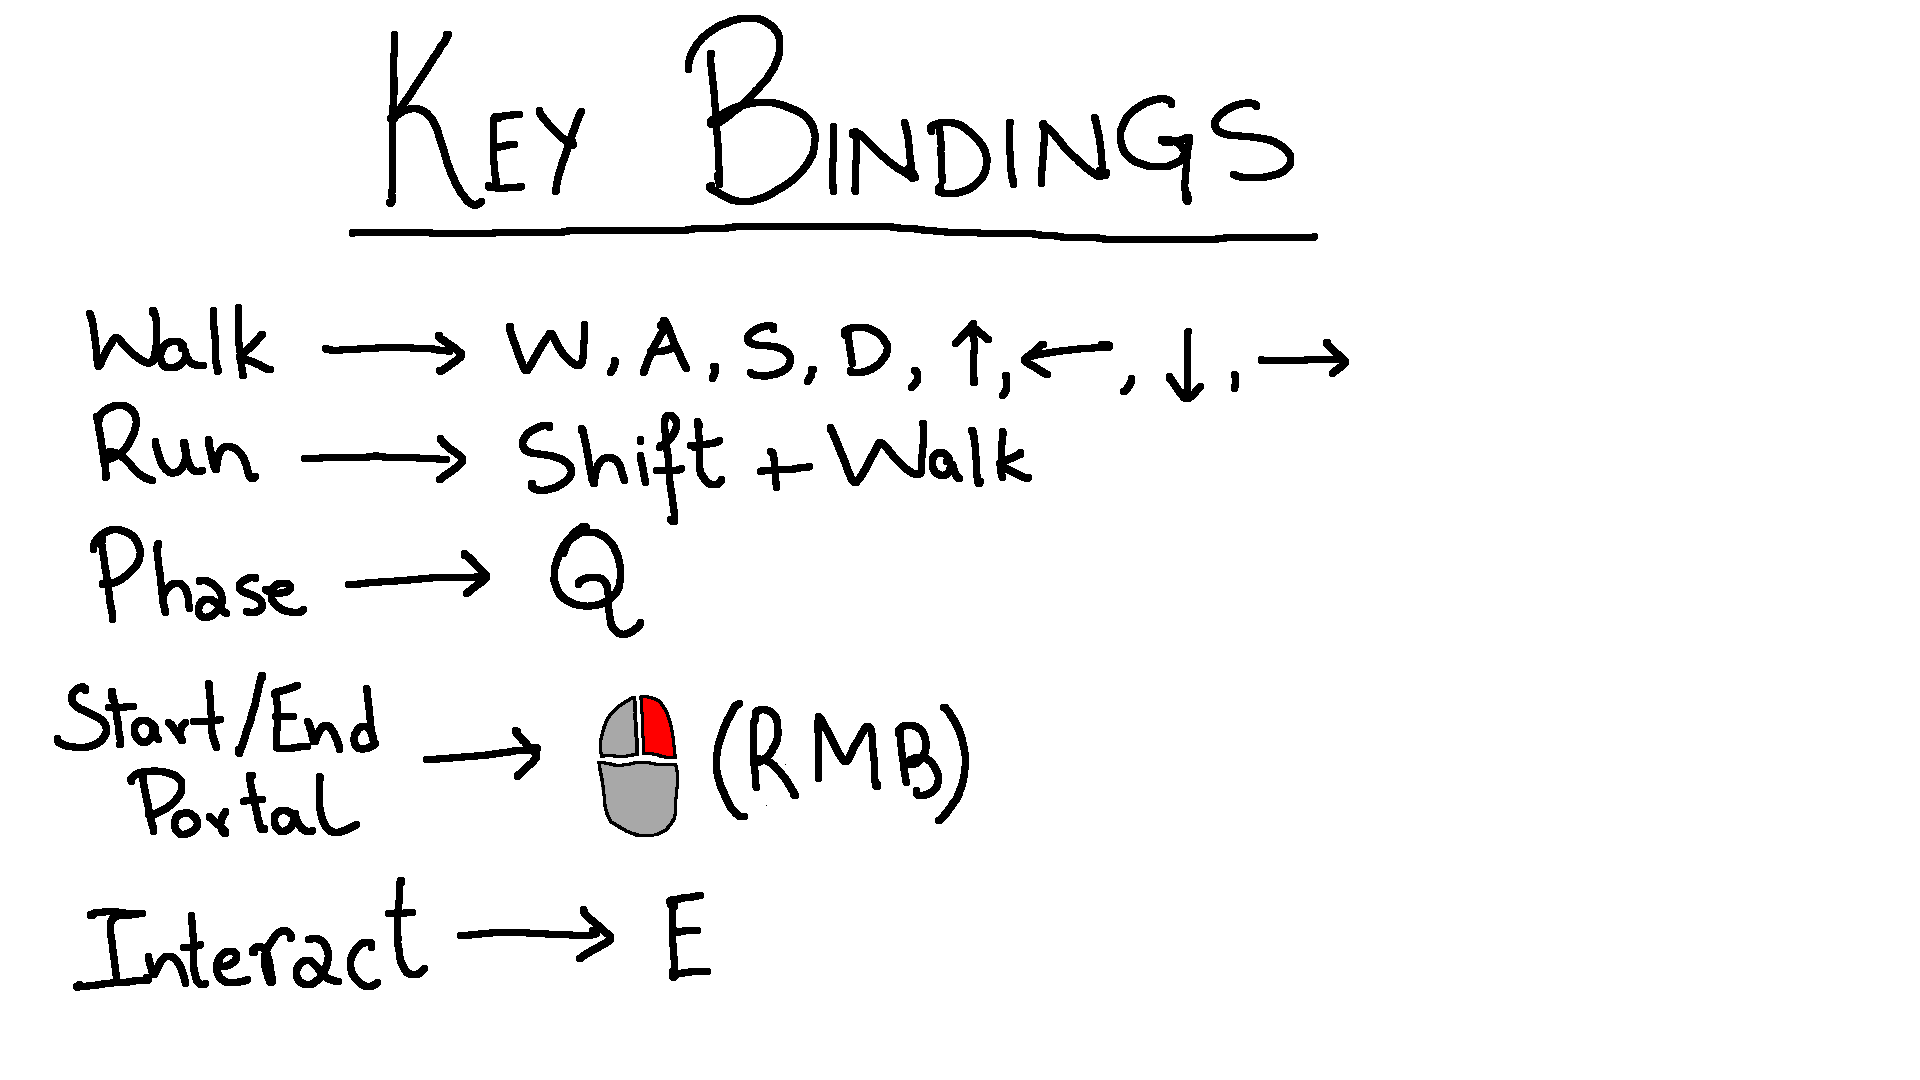 KEY BINDINGS
Walk → W, A, S, D, ↑, ←, ↓, →
Run → Shift + Walk
Phase → Q
Start/End
Portal → (RMB)
Interact → E